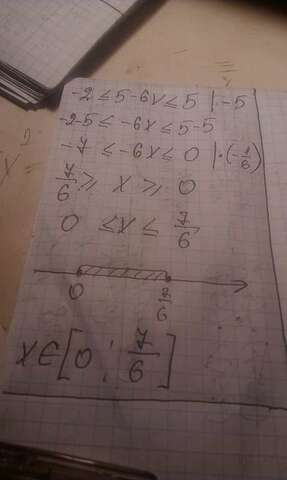 -2 ≤ 5-6x ≤ 5 | -5
-2-5 ≤ -6x ≤ 5-5
-7 ≤ -6x ≤ 0 | · (-1/6)
7/6 ≥ x ≥ 0
0 ≤ x ≤ 7/6
0 7/6
x ∈ [0 ; 7/6]